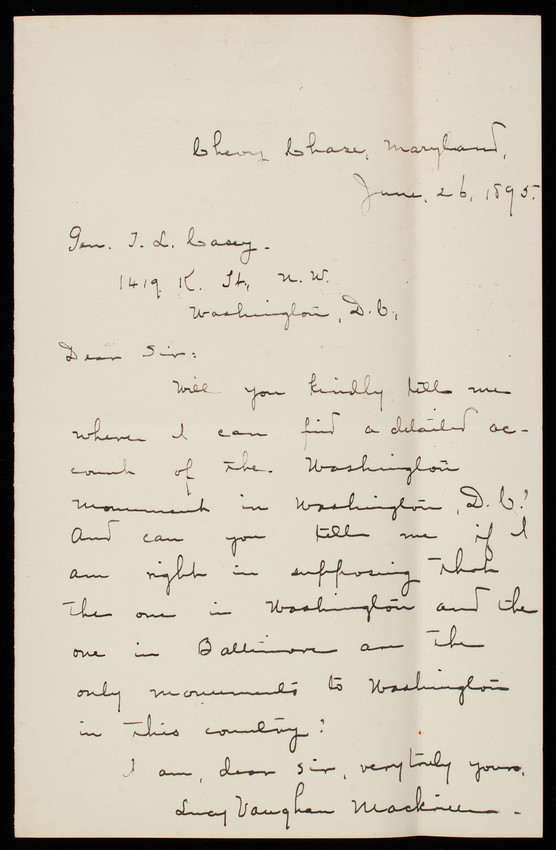 Chevy Chase, Maryland,
June, 26, 1895.
Gen. T. L. Casey.
1419 K. St., N. W.
Washington, D. C.,
Dear Sir:
Will you kindly tell me
where I can find a detailed ac-
count of the Washington
Monument in Washington, D. C.?
And can you tell me if I
am right in supposing that
the one in Washington and the
one in Baltimore are the
only monuments to Washington
in this country?
I am, dear Sir, very truly yours,
Lucy Vaughan